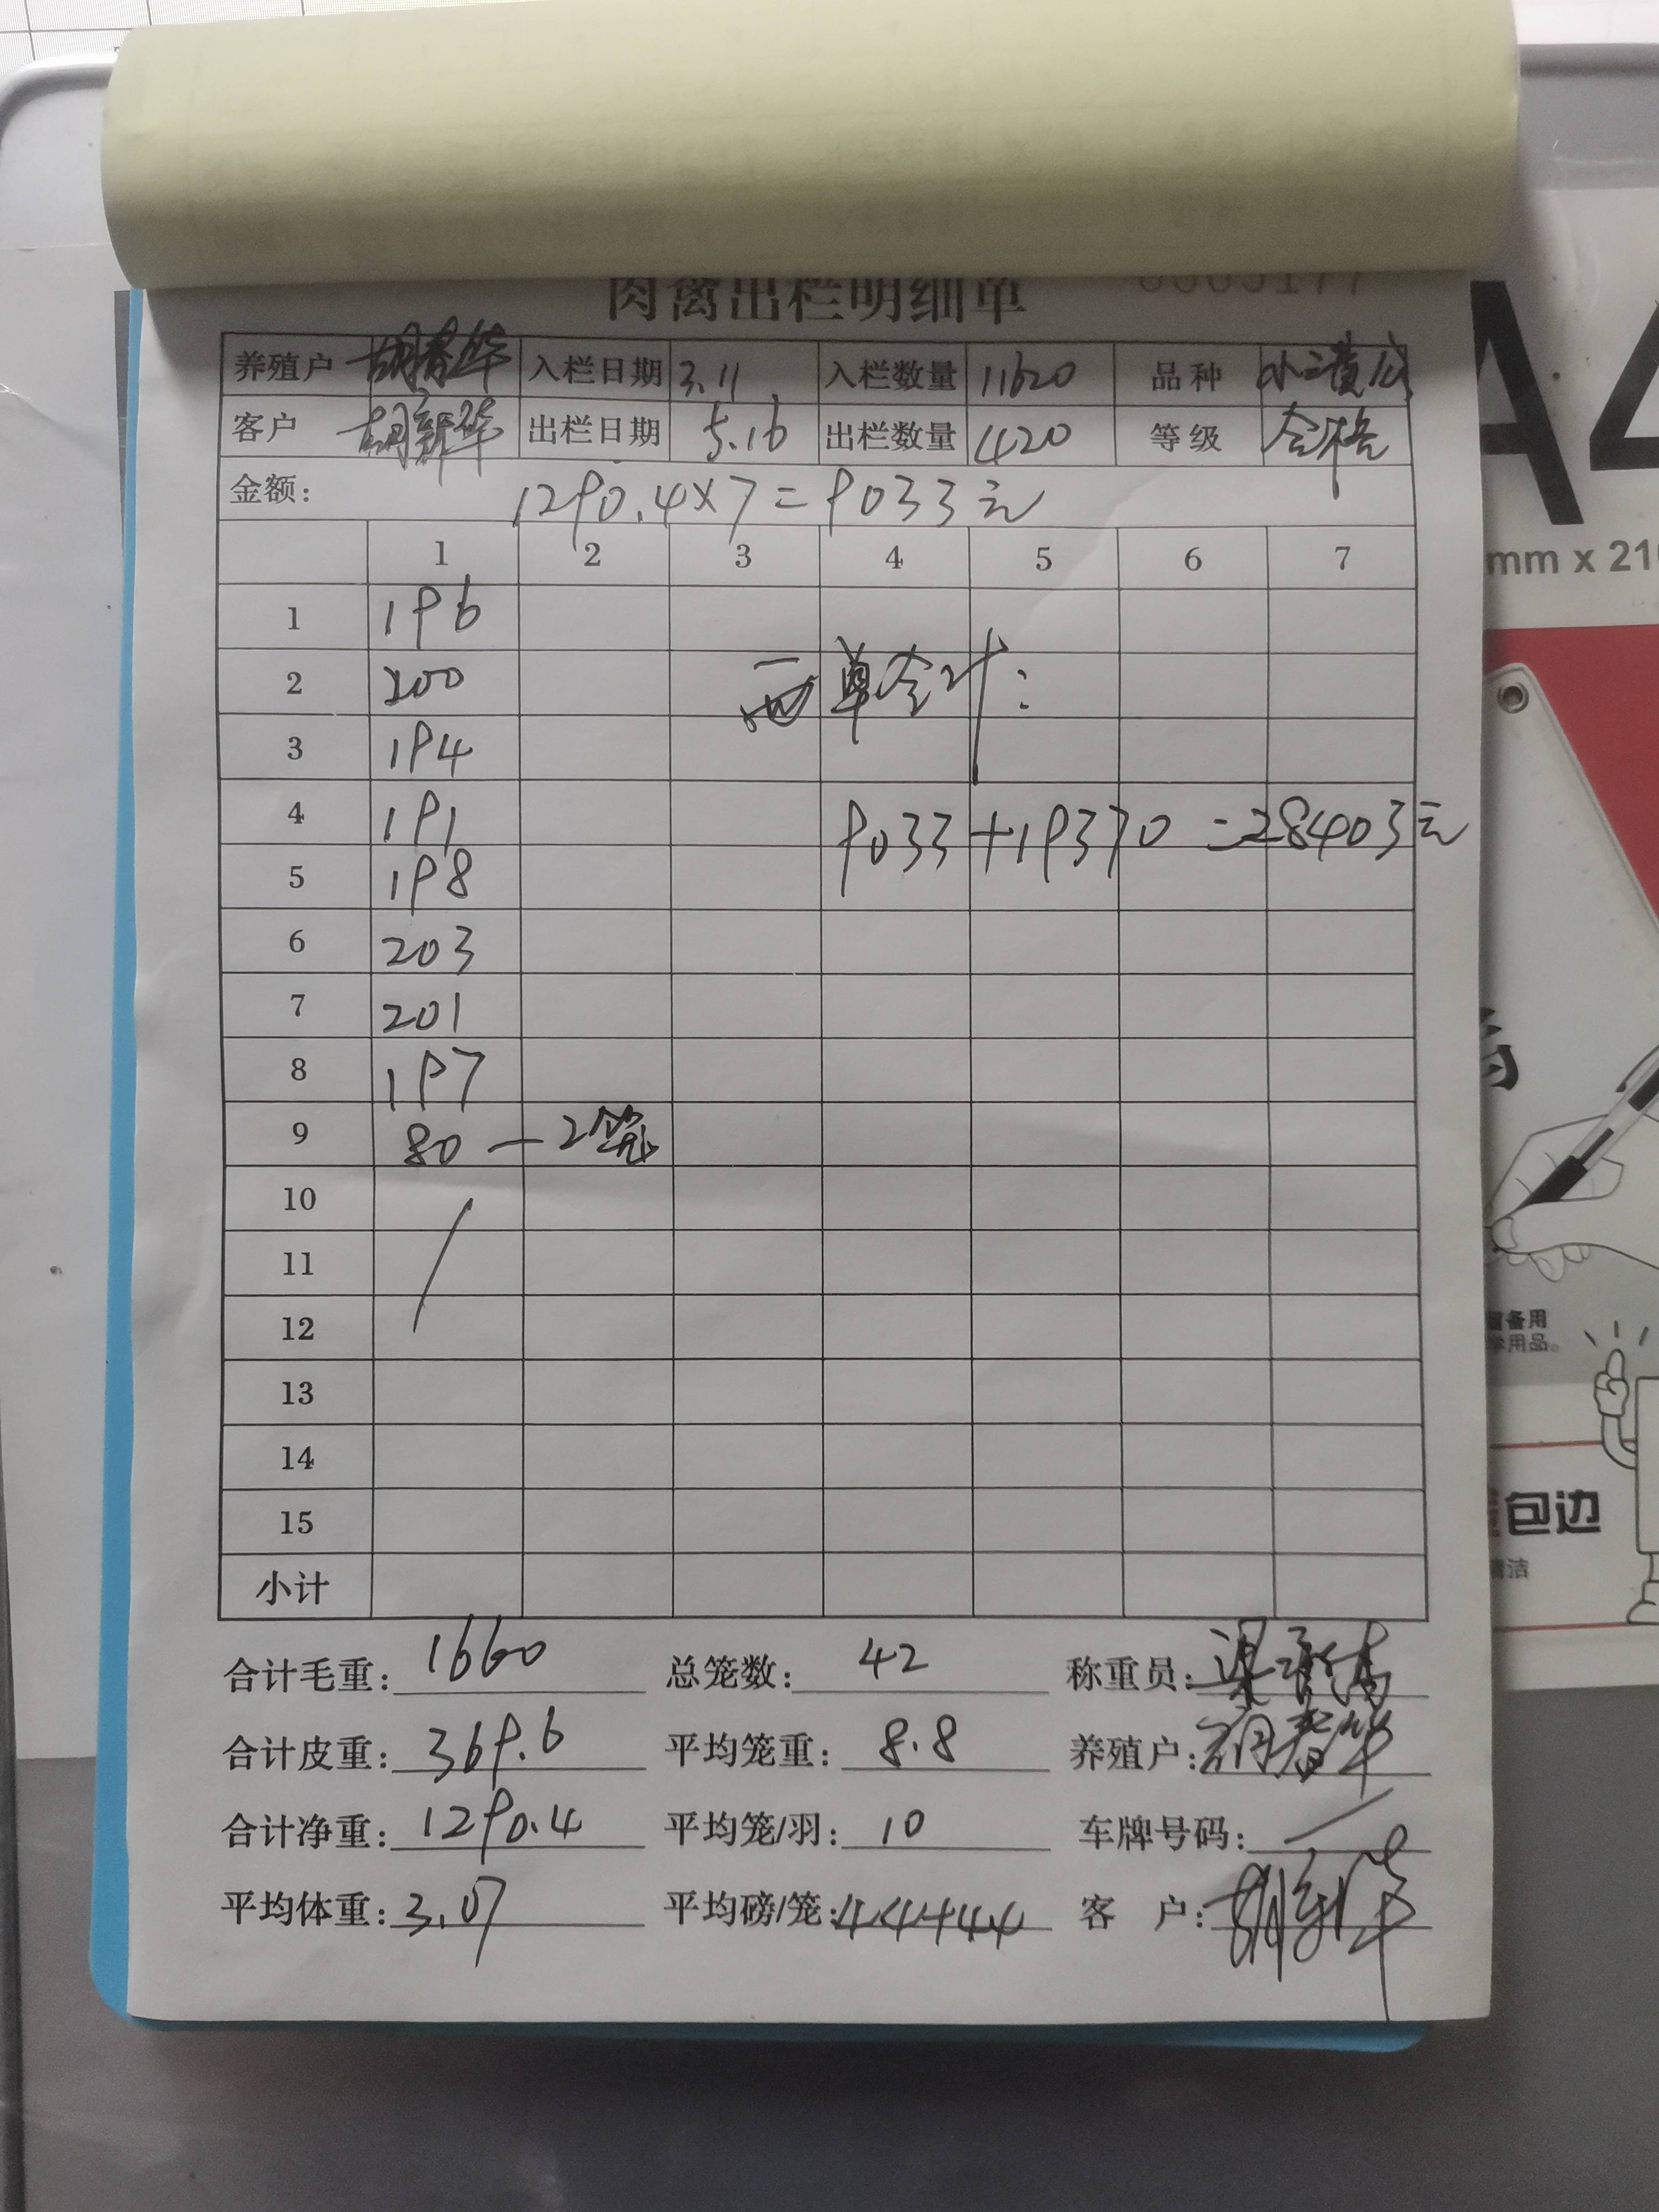 肉禽出栏明细单
养殖户 胡春华 入栏日期 3.11 入栏数量 11620 品种 小三黄公
客户 胡新华 出栏日期 5.16 出栏数量 420 等级 合格
金额: 1290.4×7=9033元
1 2 3 4 5 6 7
1 196
2 200
两单合计:
3 194
4 191
9033+19370=28403元
5 198
6 203
7 201
8 197
9 80—2笼
10
11
12
13
14
15
小计
合计毛重: 1660 总笼数: 42 称重员:
合计皮重: 369.6 平均笼重: 8.8 养殖户: 胡春华
合计净重: 1290.4 平均笼/羽: 10 车牌号码: /
平均体重: 3.07 平均磅/笼: 44444 客 户: 胡新华
A4
mm x 21
留备用
学用品。
包边
清洁